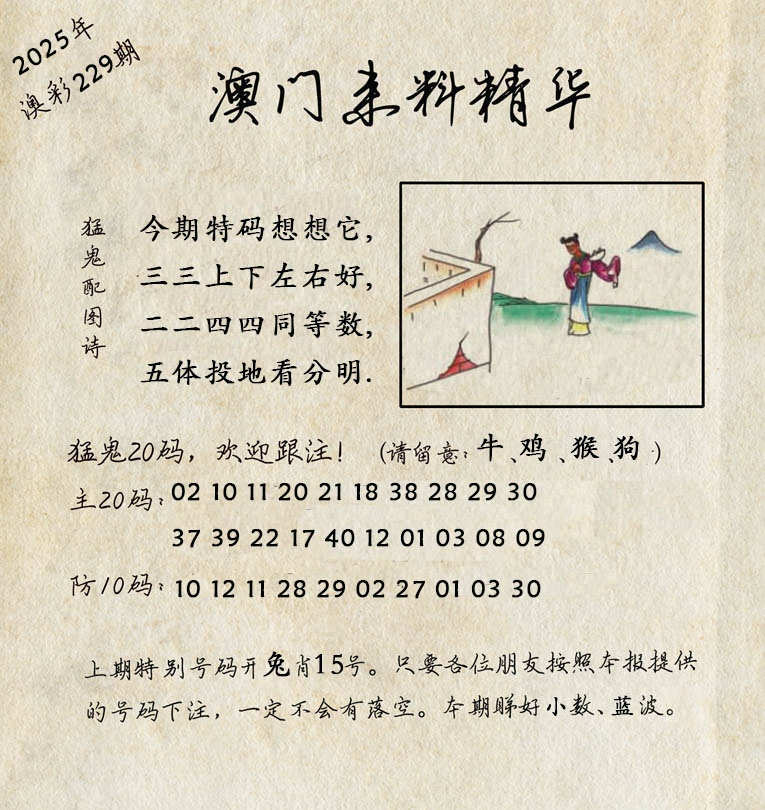 2025年
澳彩229期
澳门来料精华
猛鬼配图诗
今期特码想想它,
三三上下左右好,
二二四四同等数,
五体投地看分明.
猛鬼20码，欢迎跟注！（请留意：牛、鸡、猴、狗）
主20码：02 10 11 20 21 18 38 28 29 30
37 39 22 17 40 12 01 03 08 09
防10码：10 12 11 28 29 02 27 01 03 30
上期特别号码开兔肖15号。只要各位朋友按照本报提供
的号码下注，一定不会有落空。本期睇好小数、蓝波。